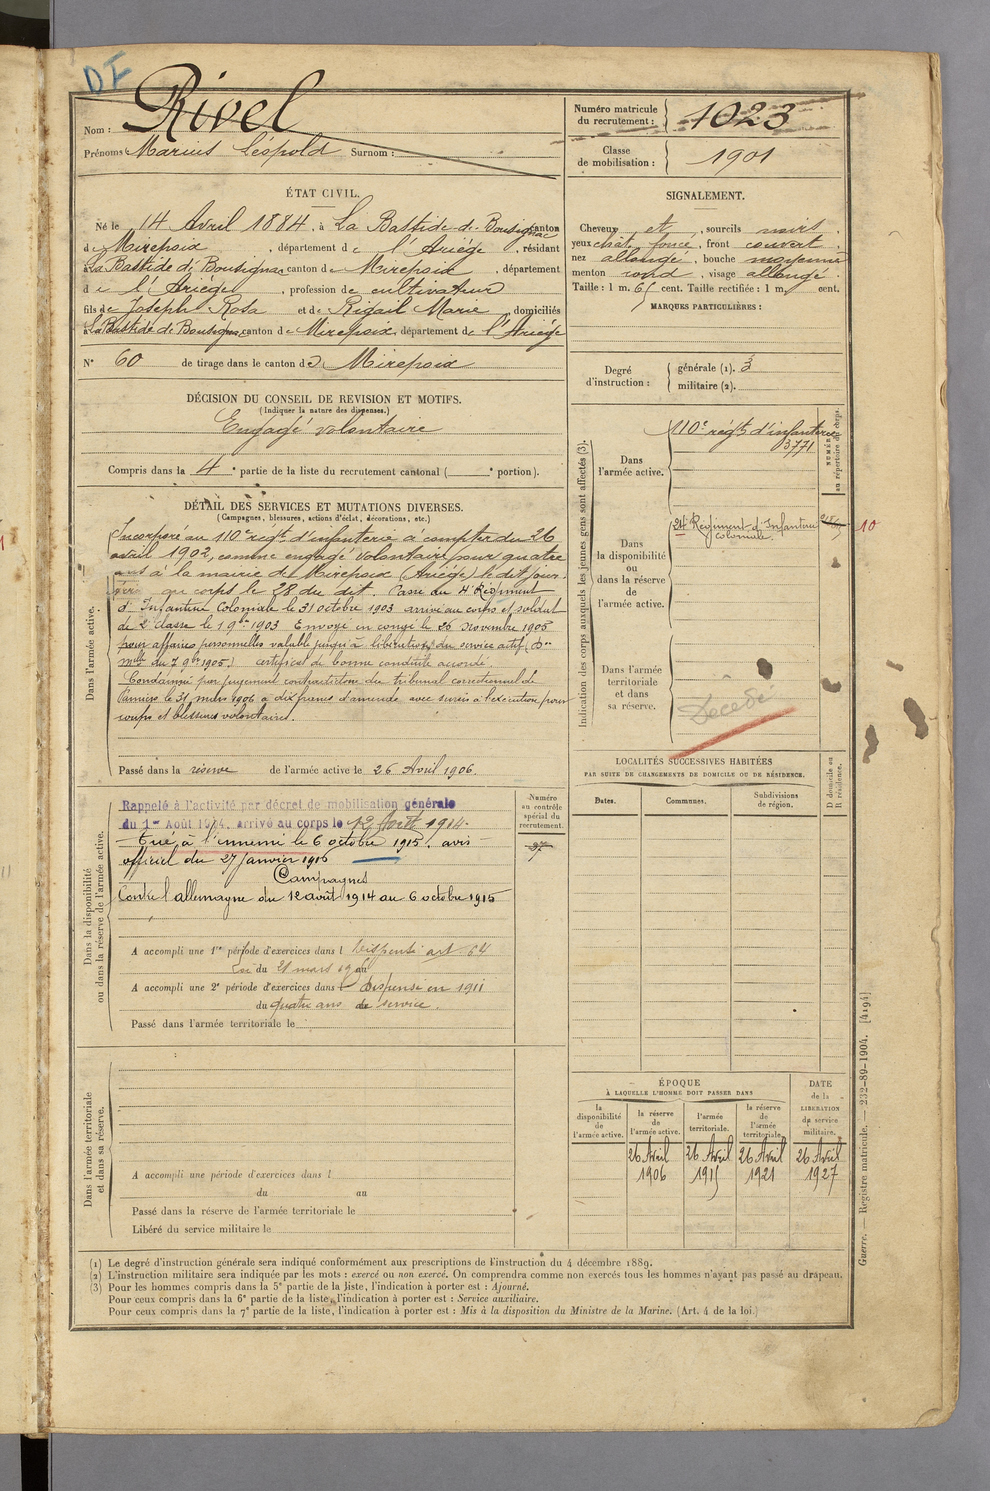 DF
Nom : Rivel
Prénoms : Marius Léopold Surnom :
Numéro matricule du recrutement : 1023
Classe de mobilisation : 1901
ÉTAT CIVIL.
Né le 14 Avril 1884, à La Bastide-de-Bousignac canton
de Mirepoix, département de l'Ariége, résidant
à La Bastide de Bousignac canton de Mirepoix, département
de l'Ariége, profession de cultivateur
fils de Joseph Rosa et de Rigail Marie, domiciliés
à La Bastide de Bousignac canton de Mirepoix, département de l'Ariége
N° 60 de tirage dans le canton de Mirepoix
SIGNALEMENT.
Cheveux et, sourcils noirs.
yeux chât. foncé, front couvert.
nez allongé, bouche moyenne
menton rond, visage allongé.
Taille : 1 m. 65 cent. Taille rectifiée : 1 m. cent.
MARQUES PARTICULIÈRES :
Degré d'instruction : générale (1). 3
militaire (2).
DÉCISION DU CONSEIL DE REVISION ET MOTIFS.
(Indiquer la nature des dispenses.)
Engagé volontaire
Compris dans la 4e partie de la liste du recrutement cantonal ( e portion).
DÉTAIL DES SERVICES ET MUTATIONS DIVERSES.
(Campagnes, blessures, actions d'éclat, décorations, etc.)
Dans l'armée active.
Incorporé au 110e régt d'infanterie à compter du 26
avril 1902, comme engagé volontaire pour quatre
ans à la mairie de Mirepoix (Ariége) le dit jour.
au corps le 28 du dit. Passé du 4e Régiment
d'Infanterie Coloniale le 31 octobre 1903 arrivé au corps et soldat
de 2e classe le 1 9bre 1903 Envoyé en congé le 26 Novembre 1905
pour affaires personnelles valable jusqu'à libération du service actif (
du 7 9bre 1905.) certificat de bonne conduite accordé.
Condamné par jugement contradictoire du tribunal correctionnel de
Pamiers le 31 mars 1906 à dix francs d'amende avec sursis à l'exécution pour
coups et blessures volontaires.
Passé dans la réserve de l'armée active le 26 Avril 1906.
Indication des corps auxquels les jeunes gens sont affectés (3).
NUMÉRO au répertoire du corps.
Dans l'armée active.
110e régt d'infanterie
3771
Dans la disponibilité ou dans la réserve de l'armée active.
24e Régiment d'Infanterie
coloniale.
10
Dans l'armée territoriale et dans sa réserve.
Décédé
Dans la disponibilité ou dans la réserve de l'armée active.
Rappelé à l'activité par décret de mobilisation générale
du 1er Août 1914, arrivé au corps le 12 Août 1914.
Tué à l'ennemi le 6 octobre 1915. avis
officiel du 27 janvier 1916
Campagnes
Contre l'allemagne du 12 août 1914 au 6 octobre 1915
A accompli une 1re période d'exercices dans l Dispensé art. 64
Loi du 21 mars 19 au
A accompli une 2e période d'exercices dans l dispensé en 1911
du quatre ans de service.
Passé dans l'armée territoriale le
Numéro au contrôle spécial du recrutement.
37
LOCALITÉS SUCCESSIVES HABITÉES
PAR SUITE DE CHANGEMENTS DE DOMICILE OU DE RÉSIDENCE.
Dates.
Communes.
Subdivisions de région.
D domicile ou R résidence.
Dans l'armée territoriale et dans sa réserve.
A accompli une période d'exercices dans l
du au
Passé dans la réserve de l'armée territoriale le
Libéré du service militaire le
ÉPOQUE
À LAQUELLE L'HOMME DOIT PASSER DANS
DATE de la LIBÉRATION du service militaire.
la disponibilité de l'armée active.
la réserve de l'armée active.
l'armée territoriale.
la réserve de l'armée territoriale.
26 Avril 26 Avril 26 Avril 26 Avril
1906 1915 1921 1927
Guerre. — Registre matricule. — 232-89-1904. [4194]
(1) Le degré d'instruction générale sera indiqué conformément aux prescriptions de l'instruction du 4 décembre 1889.
(2) L'instruction militaire sera indiquée par les mots : exercé ou non exercé. On comprendra comme non exercés tous les hommes n'ayant pas passé au drapeau.
(3) Pour les hommes compris dans la 5e partie de la liste, l'indication à porter est : Ajourné.
Pour ceux compris dans la 6e partie de la liste, l'indication à porter est : Service auxiliaire.
Pour ceux compris dans la 7e partie de la liste, l'indication à porter est : Mis à la disposition du Ministre de la Marine. (Art. 4 de la loi.)